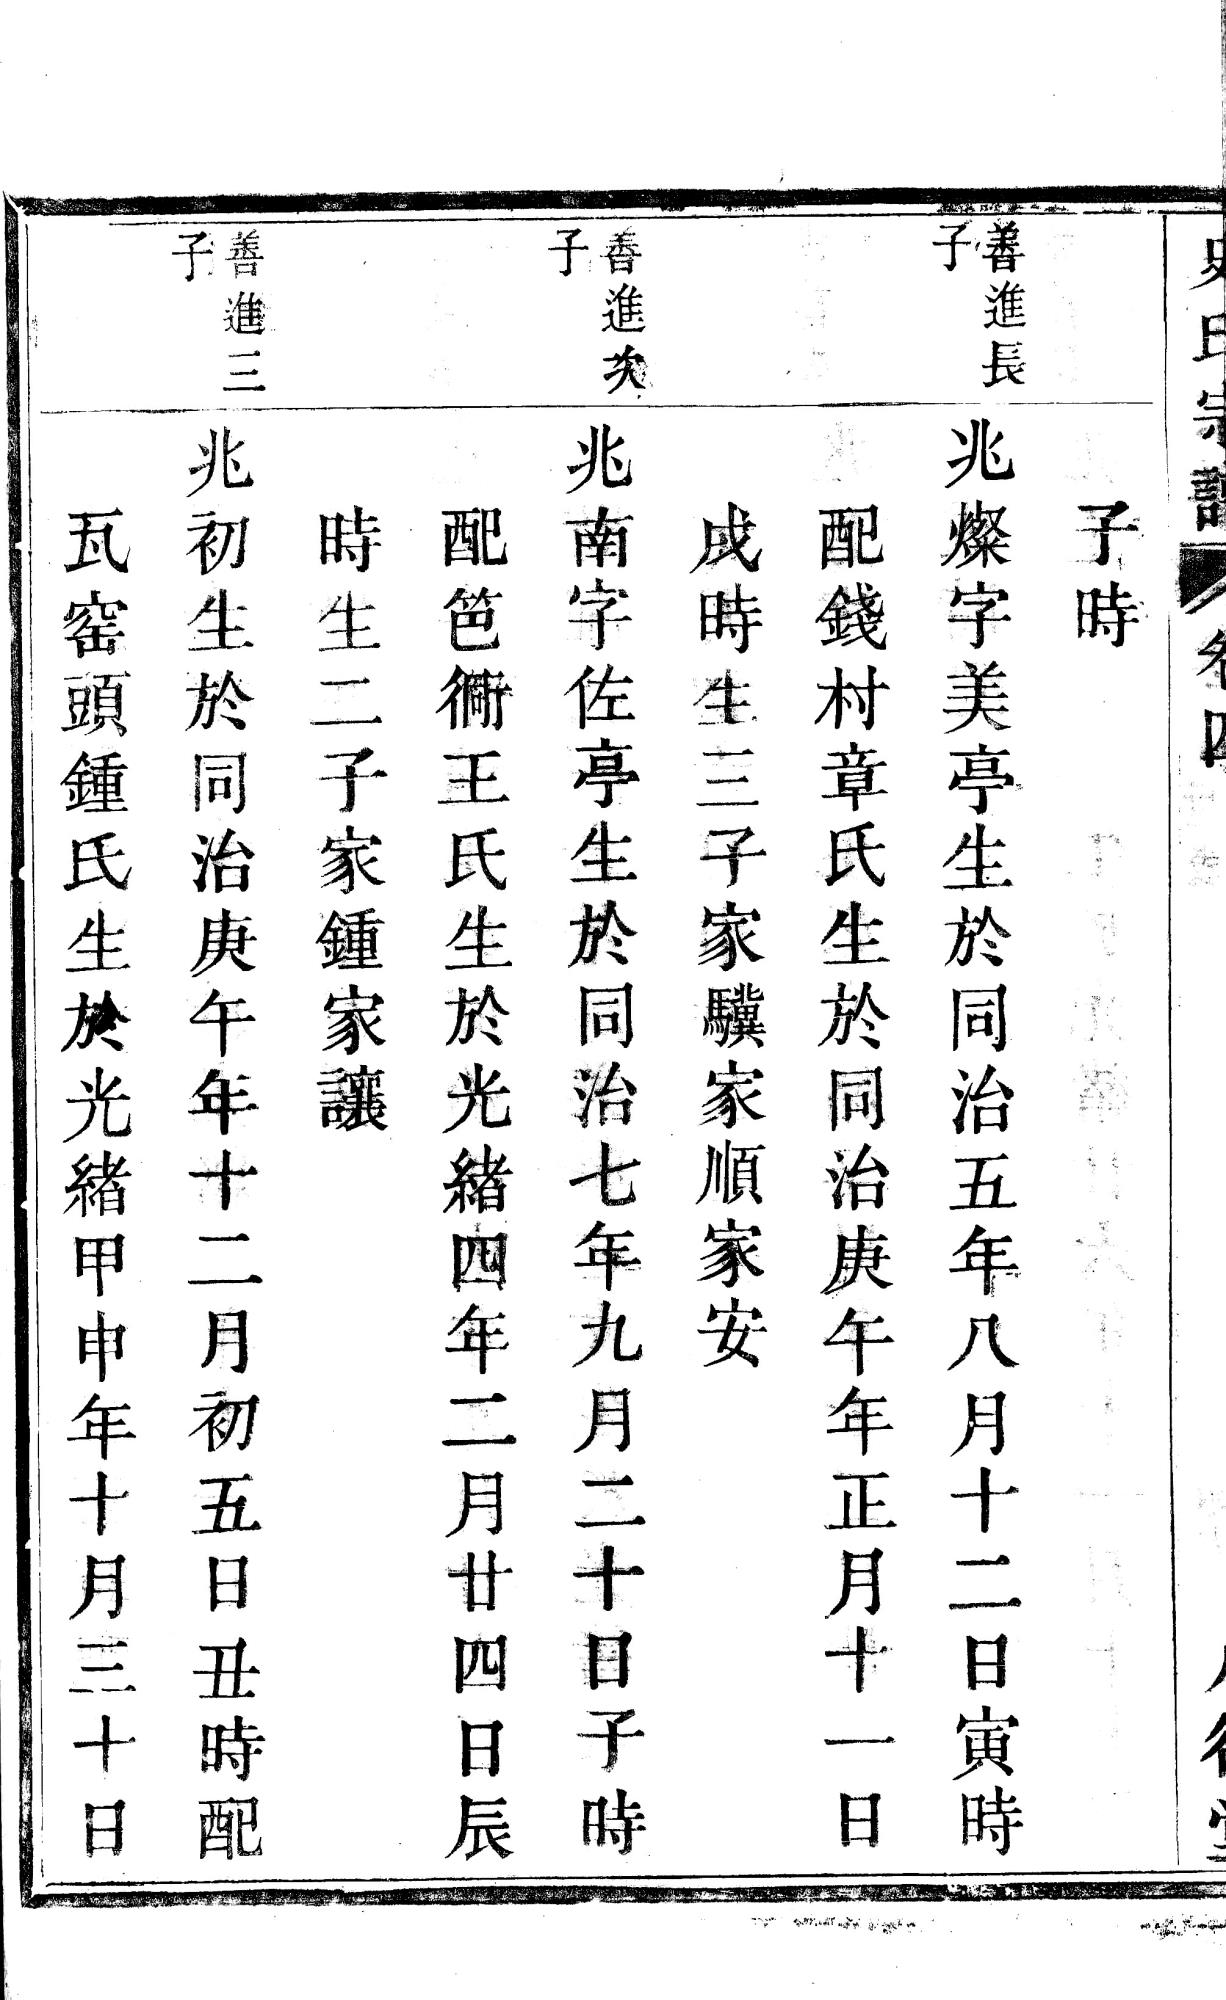 史氏宗譜 卷四
子時
善進長
子
兆燦字美亭生於同治五年八月十二日寅時
配錢村章氏生於同治庚午年正月十一日
戌時生三子家驥家順家安
善進次
子
兆南字佐亭生於同治七年九月二十日子時
配笆衖王氏生於光緒四年二月廿四日辰
時生二子家鍾家讓
善進三
子
兆初生於同治庚午年十二月初五日丑時配
瓦窑頭鍾氏生於光緒甲申年十月三十日